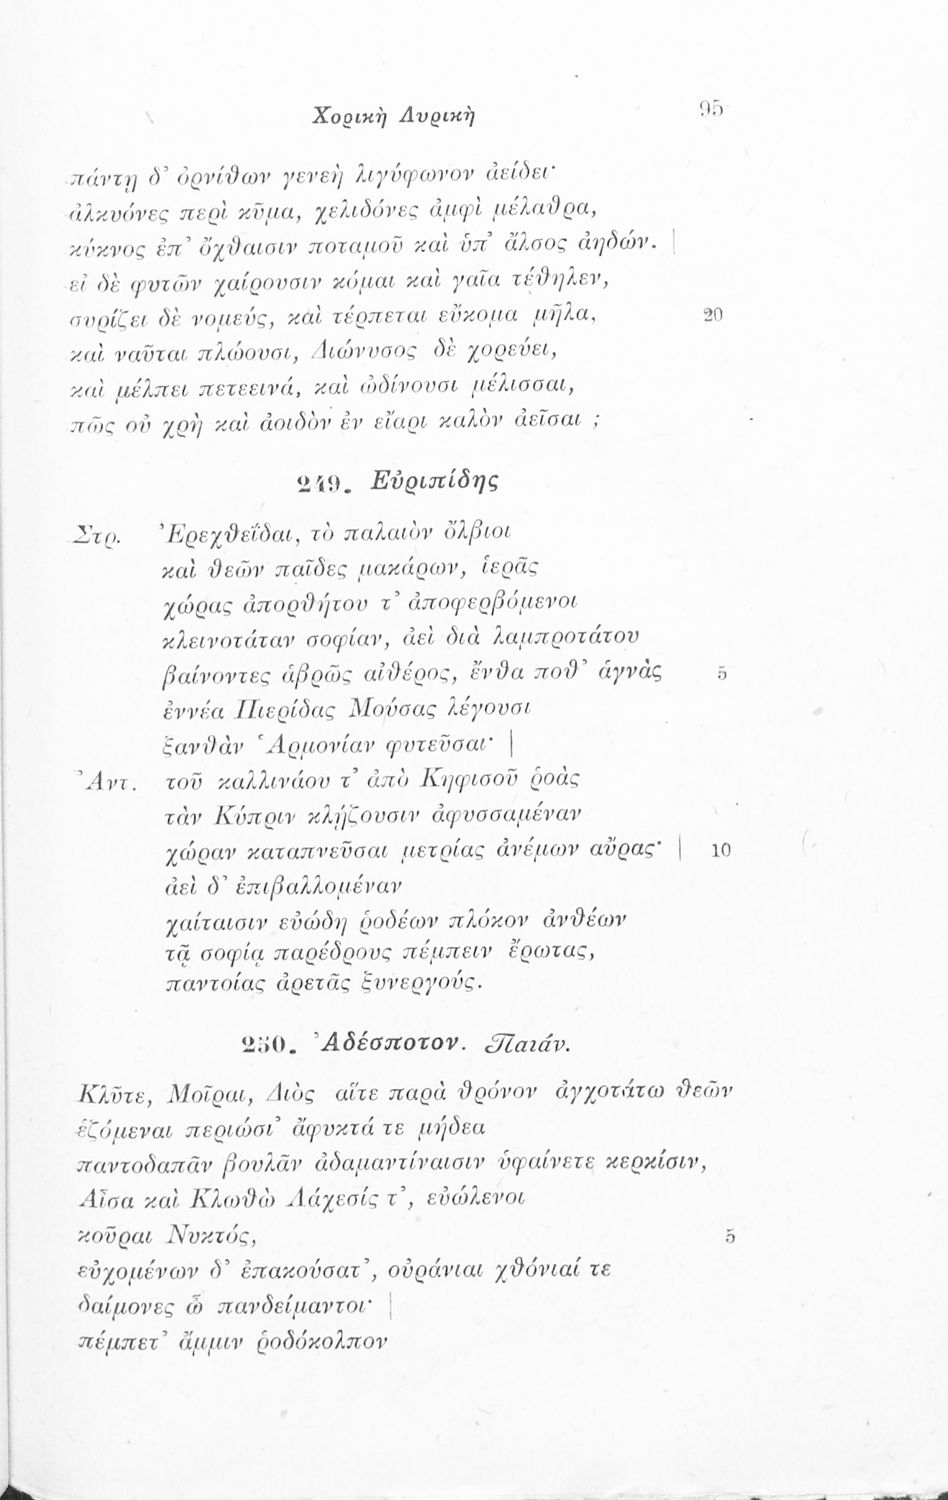 Χορικὴ Λυρικὴ 95
πάντῃ δ’ ὀρνίθων γενεὴ λιγύφωνον ἀείδει·
ἀλκυόνες περὶ κῦμα, χελιδόνες ἀμφὶ μέλαθρα,
κύκνος ἐπ’ ὄχθαισιν ποταμοῦ καὶ ὑπ’ ἄλσος ἀηδών. |
εἰ δὲ φυτῶν χαίρουσιν κόμαι καὶ γαῖα τέθηλεν,
συρίζει δὲ νομεύς, καὶ τέρπεται εὔκομα μῆλα, 20
καὶ ναῦται πλώουσι, Διώνυσος δὲ χορεύει,
καὶ μέλπει πετεεινά, καὶ ὠδίνουσι μέλισσαι,
πῶς οὐ χρὴ καὶ ἀοιδὸν ἐν εἴαρι καλὸν ἀεῖσαι ;
249. Εὐριπίδης
Στρ. Ἐρεχθεΐδαι, τὸ παλαιὸν ὄλβιοι
καὶ θεῶν παῖδες μακάρων, ἱερᾶς
χώρας ἀπορθήτου τ’ ἀποφερβόμενοι
κλεινοτάταν σοφίαν, ἀεὶ διὰ λαμπροτάτου
βαίνοντες ἁβρῶς αἰθέρος, ἔνθα ποθ’ ἁγνὰς 5
ἐννέα Πιερίδας Μούσας λέγουσι
ξανθὰν Ἁρμονίαν φυτεῦσαι· |
Ἀντ. τοῦ καλλινάου τ’ ἀπὸ Κηφισοῦ ῥοὰς
τὰν Κύπριν κλῄζουσιν ἀφυσσαμέναν
χώραν καταπνεῦσαι μετρίας ἀνέμων αὔρας· | 10
ἀεὶ δ’ ἐπιβαλλομέναν
χαίταισιν εὐώδη ῥοδέων πλόκον ἀνθέων
τᾷ σοφίᾳ παρέδρους πέμπειν ἔρωτας,
παντοίας ἀρετᾶς ξυνεργούς.
250. Ἀδέσποτον. Παιάν.
Κλῦτε, Μοῖραι, Διὸς αἵτε παρὰ θρόνον ἀγχοτάτω θεῶν
ἑζόμεναι περιώσι’ ἄφυκτά τε μήδεα
παντοδαπᾶν βουλᾶν ἀδαμαντίναισιν ὑφαίνετε κερκίσιν,
Αἶσα καὶ Κλωθὼ Λάχεσίς τ’, εὐώλενοι
κοῦραι Νυκτός, 5
εὐχομένων δ’ ἐπακούσατ’, οὐράνιαι χθόνιαί τε
δαίμονες ὦ πανδείμαντοι· |
πέμπετ’ ἄμμιν ῥοδόκολπον